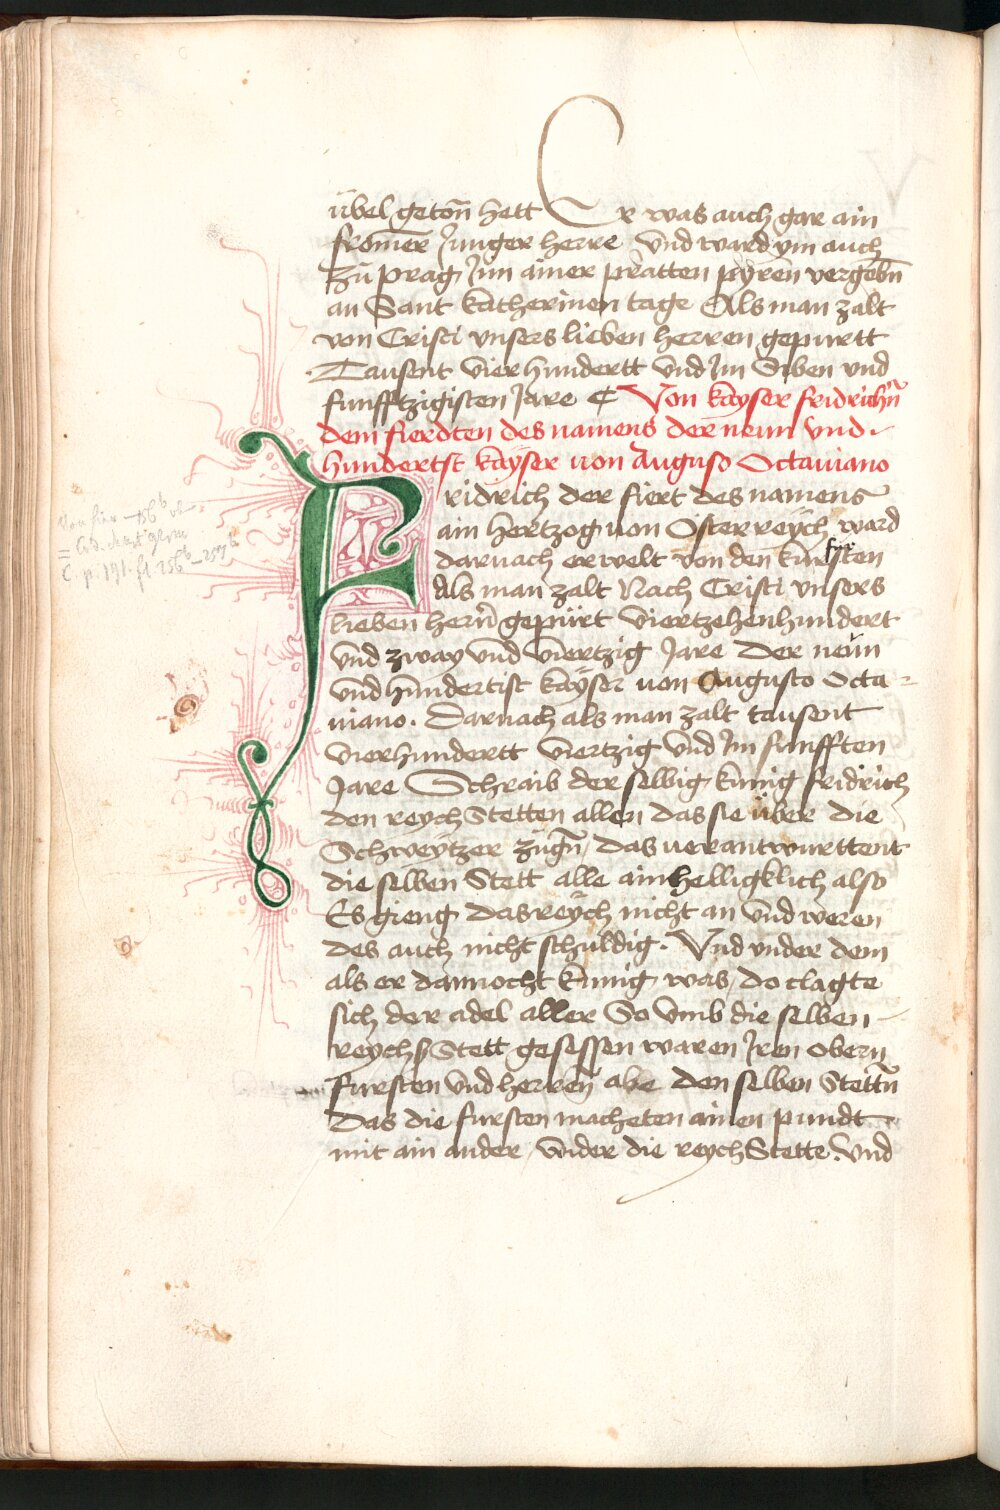 übel geton̄ hett Er was auch gar ain
from̄er Junger herre vnd ward ym auch
zu prag Jnn ainer pratten pyren vergebn̄
an Sant katherinen tage Als man zalt
von Cristi vnsers lieben herren gepurtt
Tausent vierhundertt vnd Jm Siben vnd
funfftzigisten Jare Von kayser fridrichn̄
dem fierdten des namens der neun vnd
hundertst kayser von Auguso Octauiano
Fridrich der fiert des namens
ain hertzog von Österreych ward
darnach erwelt von den kurfürsten
Als man zalt Nach Cristi vnsers
lieben hern̄ gepürt viertzehenhundert
vnd zway vnd viertzig Jare Der neün
vnd hundertist kayser von Augusto Octa-
uiano. Darnach als man zalt tausent
vierhundertt viertzig vnd Jm funfften
Jare Schraib der selbig kunig fridrich
den reych Stetten allen das sie über die
Schweytzer zugn̄ das verantwurttent
die selben Stett alle ainhelligklich also
Es gieng das reych nicht an vnd weren
des auch nicht schuldig. Vnd vnder dem
als er dannocht kunig was do clagte
sich der adel aller So vmb die selben
reychs Stett gesessen waren Jren obern
Fursten vnd herren̄ abe den selben Stettn̄
Das die fursten macheten ainen pundt
mit ain ander wider die reych Stette. vnd